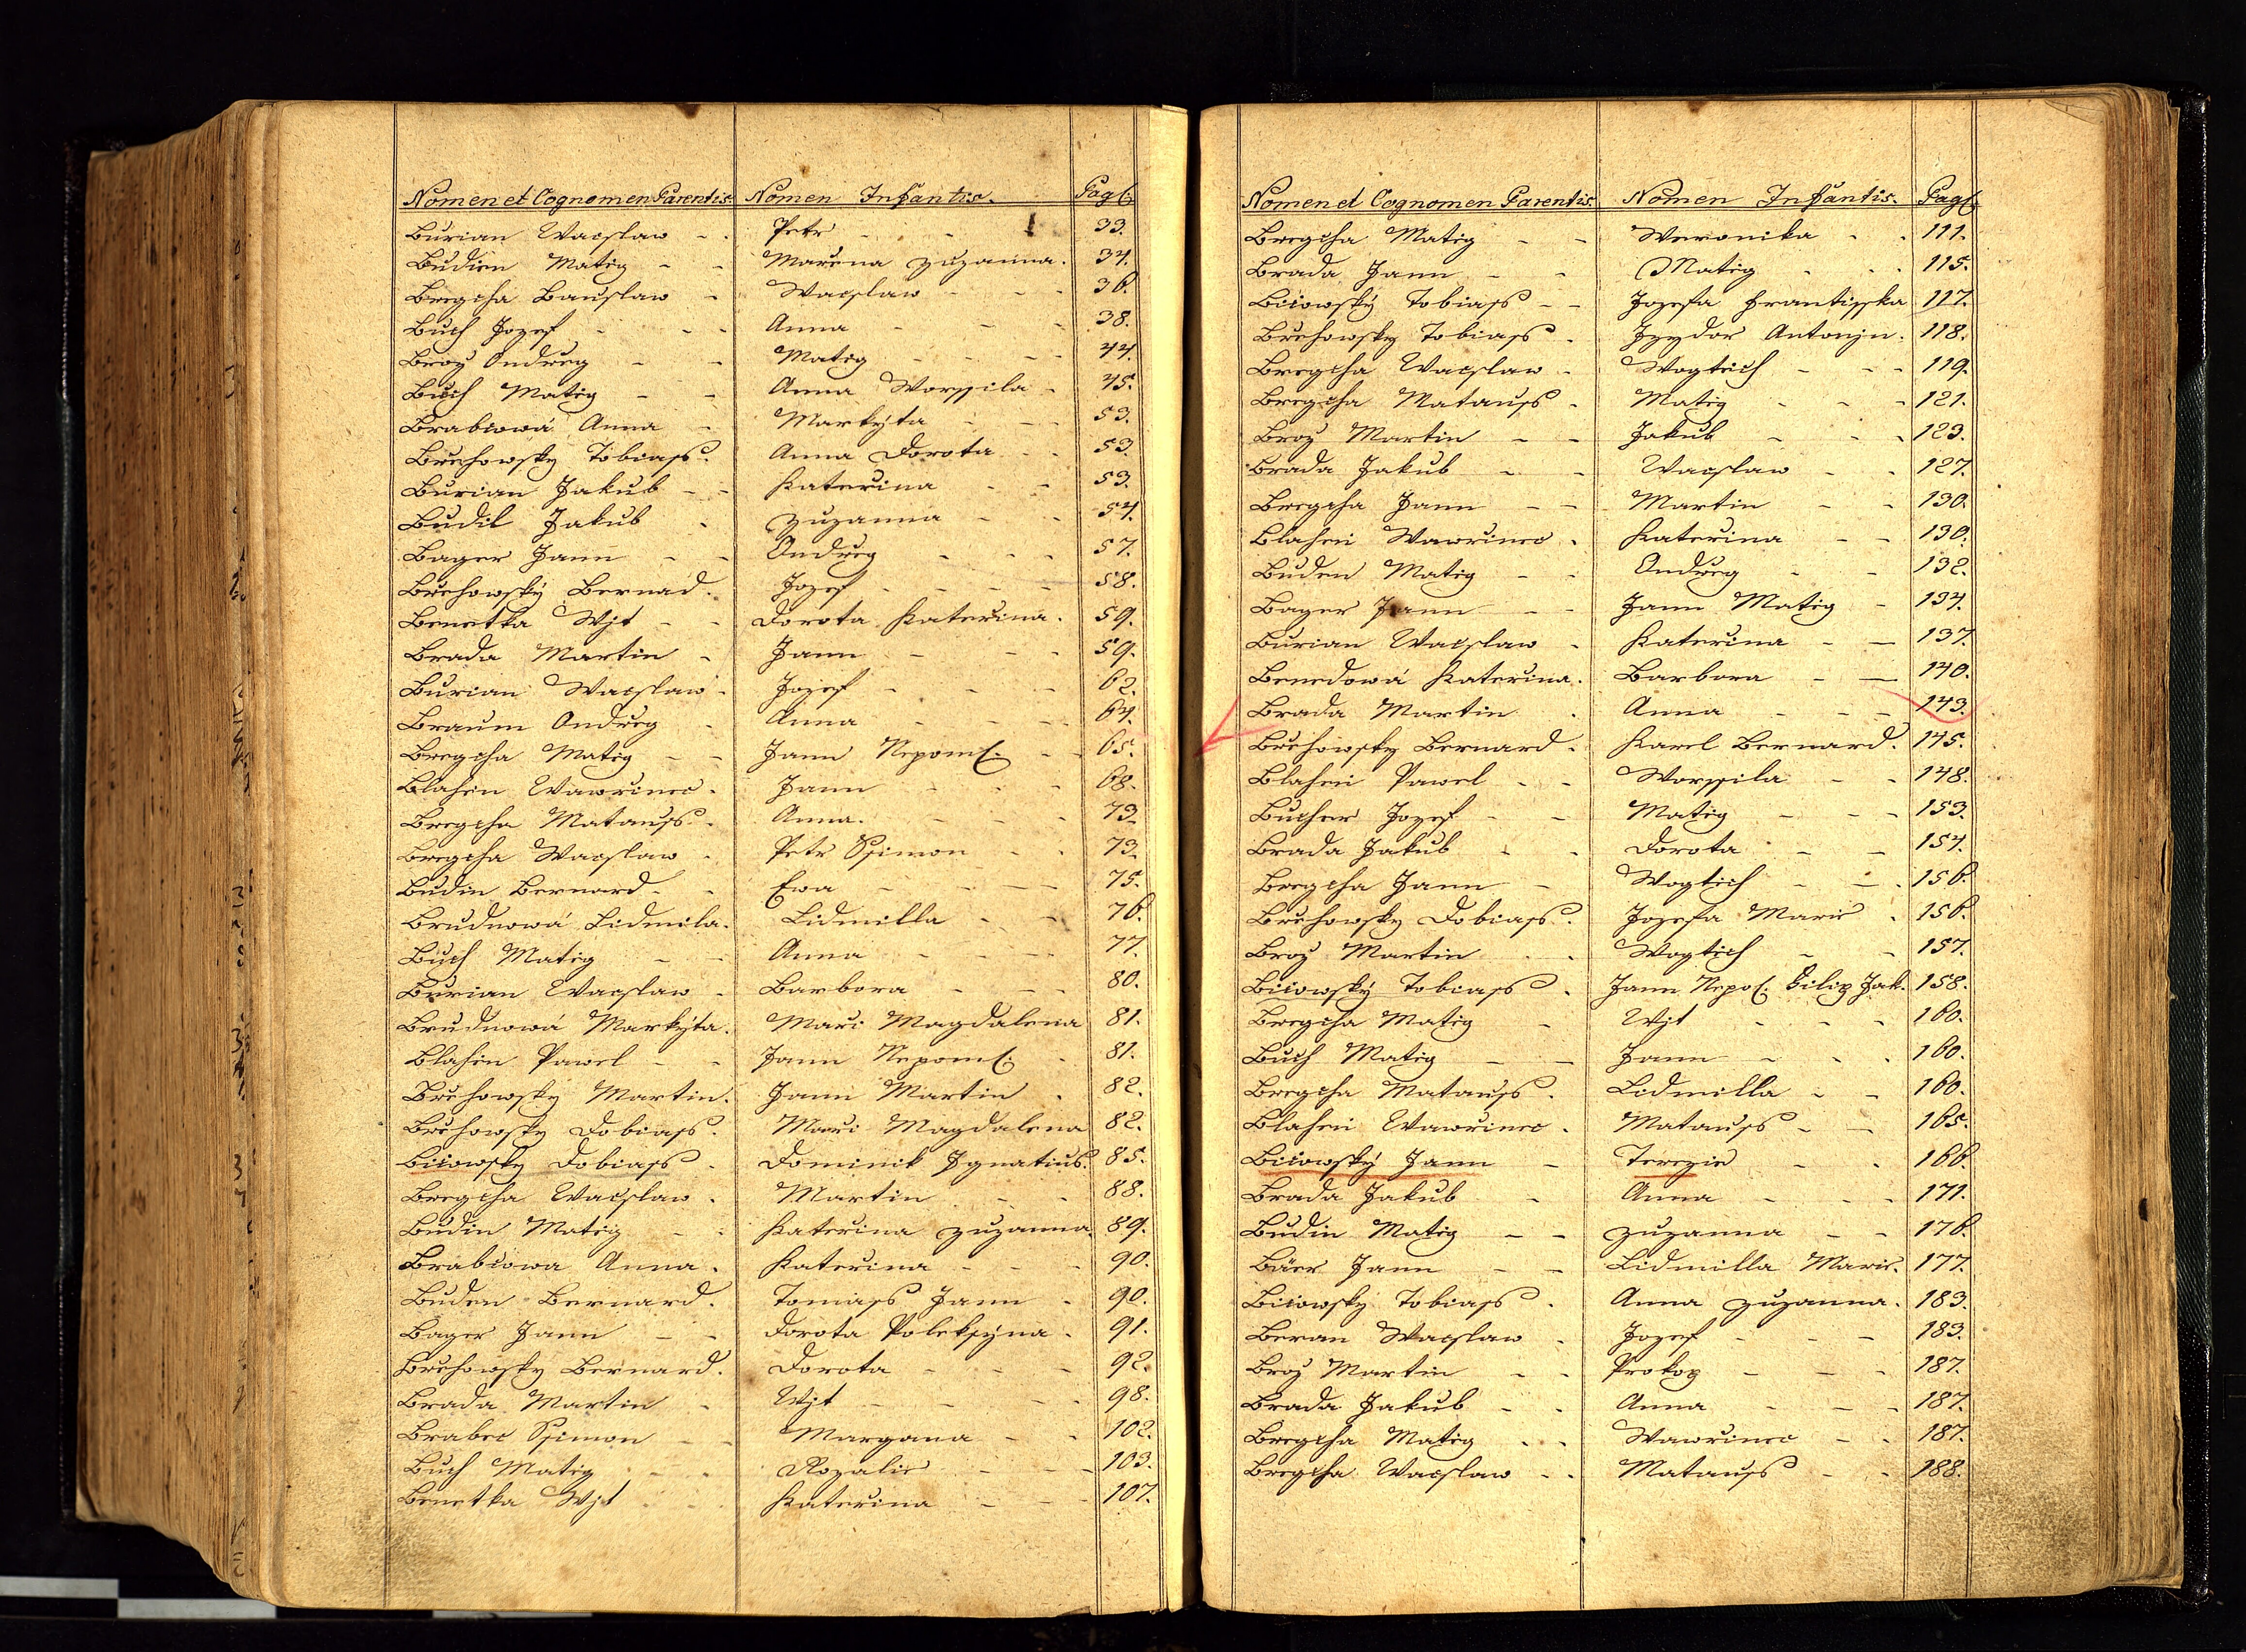 Nomen et Cognomen Parentis. Nomen Infantis. Pag:
Burian Wacslaw Petr 33.
Budien Matieg Marena Zuzanna. 34.
Bregcha Bauslaw Wacslaw 36.
Buch Jozef Anna 38.
Broz Ondreg Matieg 44.
Buch Matieg Anna Worssila 45.
Brabcowá Anna Markyta 53.
Brchowsky Tobiass. Anna Dorota 53.
Burian Jakub Katerina 53.
Budil Jakub Zuzanna 54.
Bager Jann Ondreg 57.
Brchowský Bernad. Jozef 58.
Benetka Wjt Dorota Katerina. 59.
Brada Martin Jann 59.
Burian Wacslaw Jozef 62.
Braum Ondreg Anna 64.
Bregcha Matieg Jann Nepom: 65.
Blahen Wawrinec Jann 68.
Bregcha Matauss Anna. 73.
Bregcha Wacslaw Petr Ssimon 73.
Budin Bernard Ewa 75.
Brudnowá Lidmila. Lidmilla 76.
Buch Matieg Anna 77.
Burian Wacslaw Barbora 80.
Brudnowá Markyta. Mari Magdalena 81.
Blahen Pawel Jann Nepom: 81.
Brchowsky Martin. Jann Martin 82.
Brchowsky Dobiass. Mari Magdalena 82.
Bicowsky Dobiass Dominik Ignatius. 85.
Bregcha Wacslaw. Martin 88.
Budin Matieg Katerina Zuzanna. 89.
Brabcowa Anna. Katerina 90.
Buden Bernard. Tomass Jann 90.
Bager Jann Dorota Poleksyna. 91.
Brchowsky Bernard. Dorota 92.
Brada Martin Wjt 98.
Brabec Ssimon Margana 102.
Buch Matieg Rozalie 103.
Benetka Wjt Katerina 107.
Nomen et Cognomen Parentis Nomen Infantis. Pag:
Bregcha Matieg Weronika 111.
Brada Jann Matieg 115.
Bicowský Tobiass Jozefa Frantisska 117.
Brchowsky Tobiass Izydor Antonjn. 118.
Bregcha Wacslaw Wogtiech 119.
Bregcha Matauss Matieg 121.
Broz Martin Jakub 123.
Brada Jakub Wacslaw 127.
Bregcha Jann Martin 130.
Blahen Wawrinec Katerina 130.
Buden Matieg Ondreg 132.
Bager Jann Jann Matieg 134.
Burian Wacslaw Katerina 137.
Benedowá Katerina. Barbora 140.
Brada Martin Anna 143.
Brchowsky Bernard. Karel Bernard. 145.
Blahen Pawel Worssila 148.
Bucher Jozef Matieg 153.
Brada Jakub Dorota 154.
Bregcha Jann Wogtiech 156.
Brchowsky Dobiass. Jozefa Marie 156.
Broz Martin Wogtiech 157.
Bicowský Tobiass Jann Nepo: Filip Jak. 158.
Bregcha Matieg Wjt 160.
Buch Matieg Jann 160.
Bregcha Matauss. Lidmilla 160.
Blahen Wawrinec. Matauss 165.
Bicowský Jann Terezie 166.
Brada Jakub Anna 171.
Budin Matieg Zuzanna 176.
Bäer Jann Lidmilla Marie. 177.
Bicowsky Tobiass. Anna Zuzanna. 183.
Beran Wacslaw Jozef 183.
Broz Martin Prokop 187.
Brada Jakub Anna 187.
Bregcha Matieg Wawrinec 187.
Bregcha Wacslaw Matauss 188.